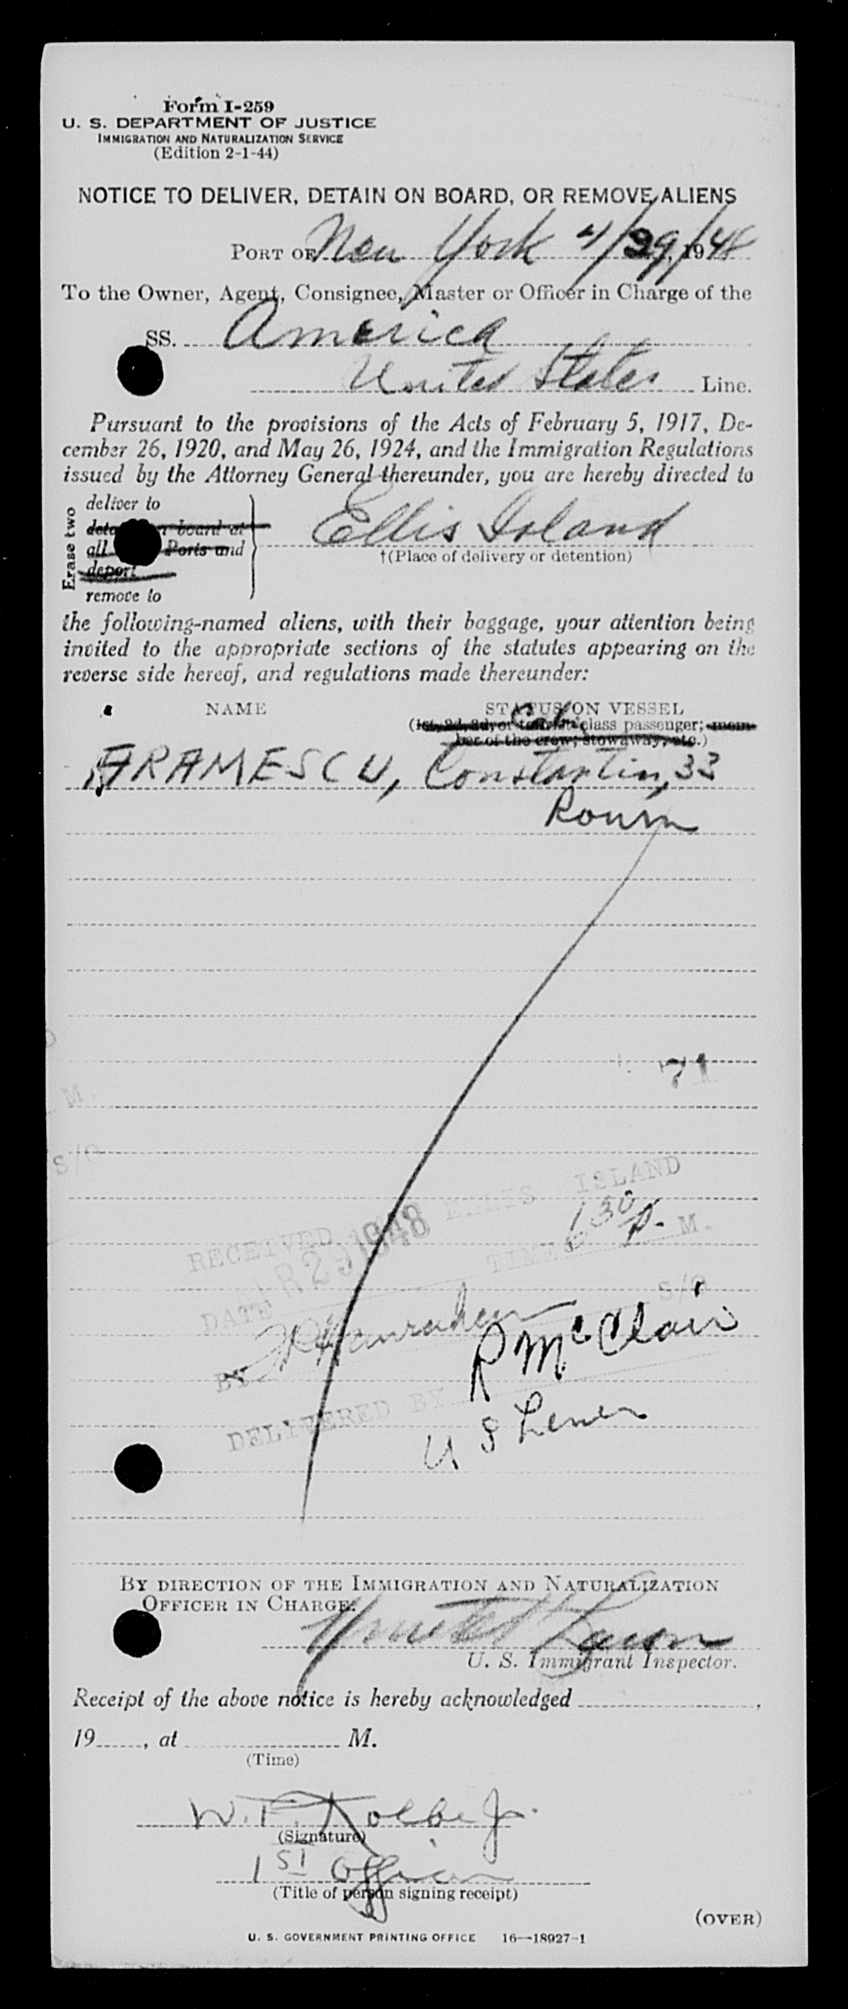 Form I-259
U. S. DEPARTMENT OF JUSTICE
IMMIGRATION AND NATURALIZATION SERVICE
(Edition 2-1-44)
NOTICE TO DELIVER, DETAIN ON BOARD, OR REMOVE ALIENS
PORT OF New York 4/29/, 1948
To the Owner, Agent, Consignee, Master or Officer in Charge of the
SS. America
United States Line.
Pursuant to the provisions of the Acts of February 5, 1917, De-
cember 26, 1920, and May 26, 1924, and the Immigration Regulations
issued by the Attorney General thereunder, you are hereby directed to
Erase two
deliver to
board at
all Ports and
deport
remove to
Ellis Island
†(Place of delivery or detention)
the following-named aliens, with their baggage, your attention being
invited to the appropriate sections of the statutes appearing on the
reverse side hereof, and regulations made thereunder:
NAME STATUS ON VESSEL
(1st, 2d, 3d, or tourist class passenger; mem-
ber of the crew; stowaway, etc.)
ARAMESCU, Constantin, 33
Roum
71
RECEIVED ELLIS ISLAND
DATE APR 29 1948 TIME 1 30 P. M.
S/O
BY
R McClair
DELIVERED BY
U S Lines
BY DIRECTION OF THE IMMIGRATION AND NATURALIZATION
OFFICER IN CHARGE:
U. S. Immigrant Inspector.
Receipt of the above notice is hereby acknowledged ,
19 , at M.
(Time)
W. F. Kolbe Jr.
(Signature)
1ST Officer
(Title of person signing receipt)
(OVER)
U. S. GOVERNMENT PRINTING OFFICE 16—18927-1